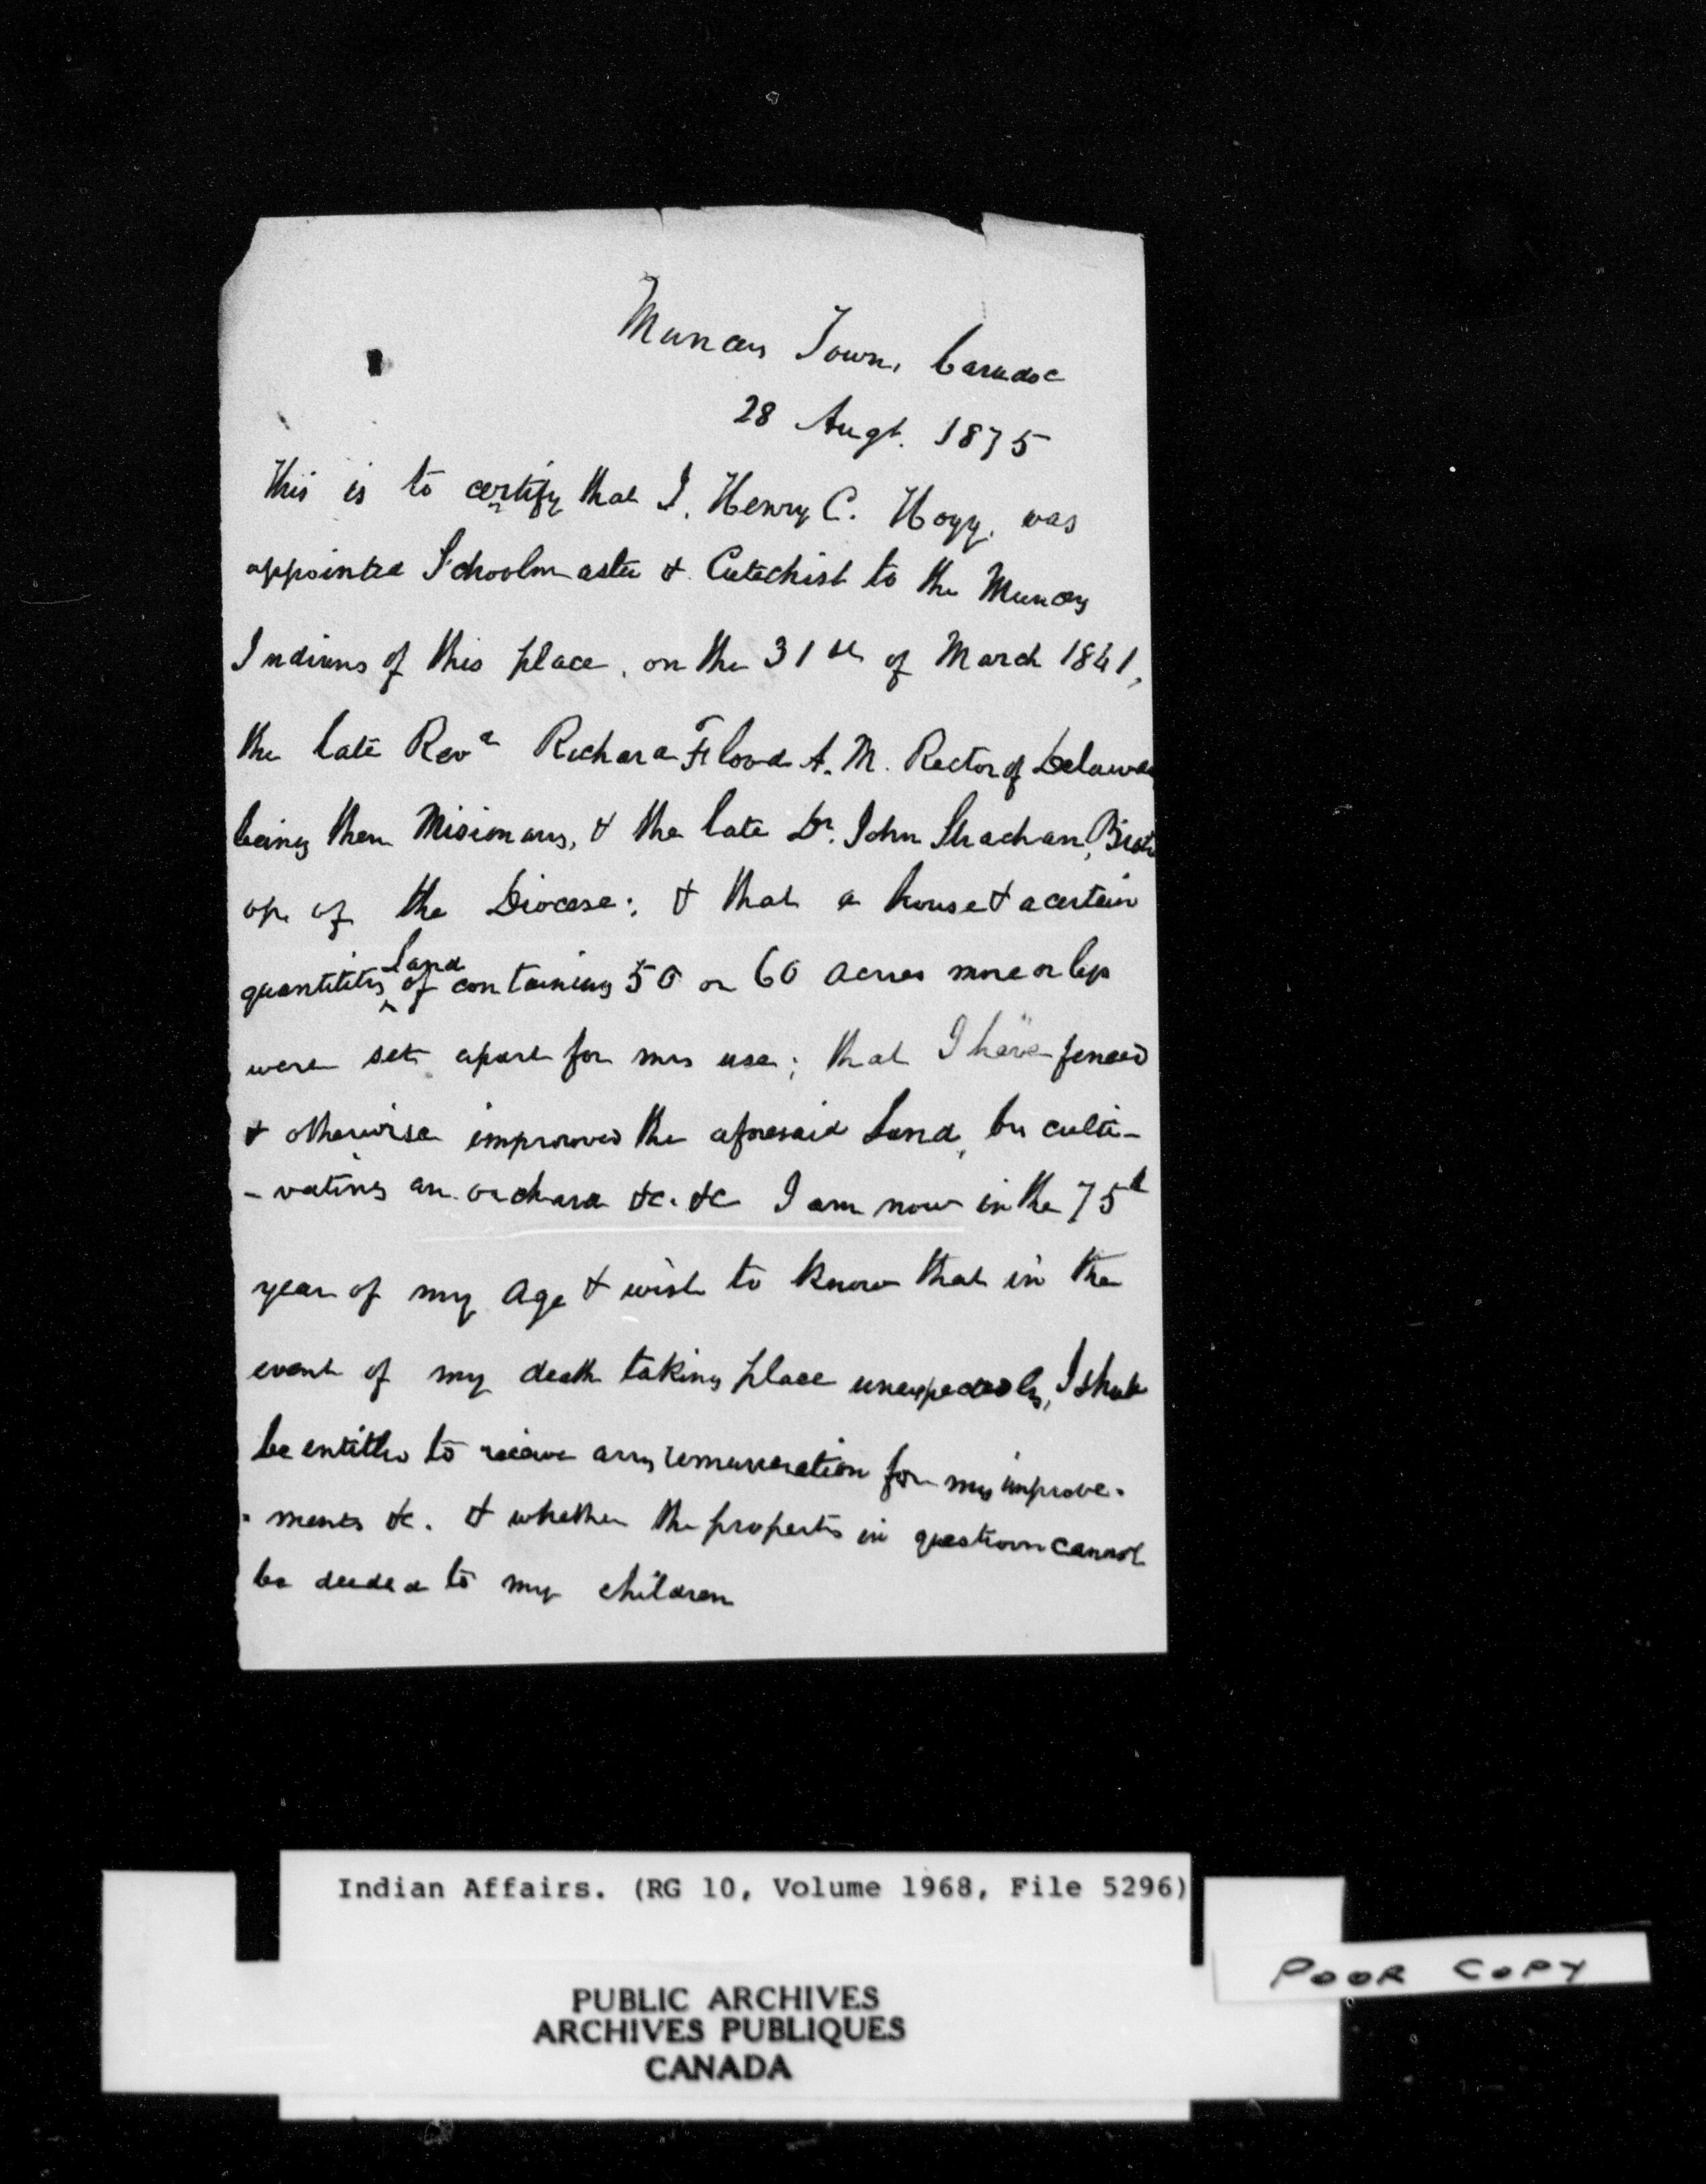 Muncey Town, Caradoc
28 Augt. 1875
This is to certify that I, Henry C. Hogg, was
appointed Schoolmaster & Catechist to the Muncey
Indians of this place, on the 31st of March 1841,
the late Revd Richard Flood A.M. Rector of Delaware
being then Misionary, & the late Dr. John Strachan, Bish
op of the Diocese; & that a house & a certain
quantity land of containing 50 or 60 acres more or less
were set apart for my use; that I have fenced
& otherwise improved the aforesaid Land, by culti-
-vating an orchard &c. &c I am now in the 75th
year of my age & wish to know that in the
event of my death taking place unexpectedly, I shall
be entitled to receive any remuneration for my improve-
-ments &c. & whether the property in question cannot
be deeded to my children
Indian Affairs. (RG 10, Volume 1968, File 5296)
PUBLIC ARCHIVES
ARCHIVES PUBLIQUES
CANADA
POOR COPY